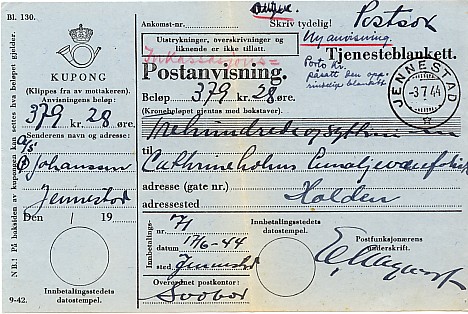 Bl. 130.
Ankomst-nr.
Skriv tydelig!
Postsak
Utstrykninger, overskrivninger og
liknende er ikke tillatt.
Ny anvisning.
Tjenesteblankett.
KUPONG
(Klippes fra av mottakeren).
Anvisningens beløp:
379 kr. 28 øre.
Senderens navn og adresse:
A/S
Johansen
Jennestad
Den 1 19
Innbetalingsstedets
datostempel.
9-42.
N B.! På baksiden av kupongen kan settes hva beløpet gjelder.
Postanvisning.
Porto kr.
påsatt den opp-
blankett
Beløp 379 kr. 28 øre.
(Kronebeløpet gjentas med bokstaver)
JENNESTAD
-3 7.44
til Cathrineholms Emaljevarefabrik
adresse (gate nr.)
adressested Halden
Innbetalings-
nr. 71
datum 17/6-44
sted. Jennestad
Overordnet postkontor:
Svolvær
Innbetalingsstedets
datostempel.
Postfunksjonærens
underskrift.